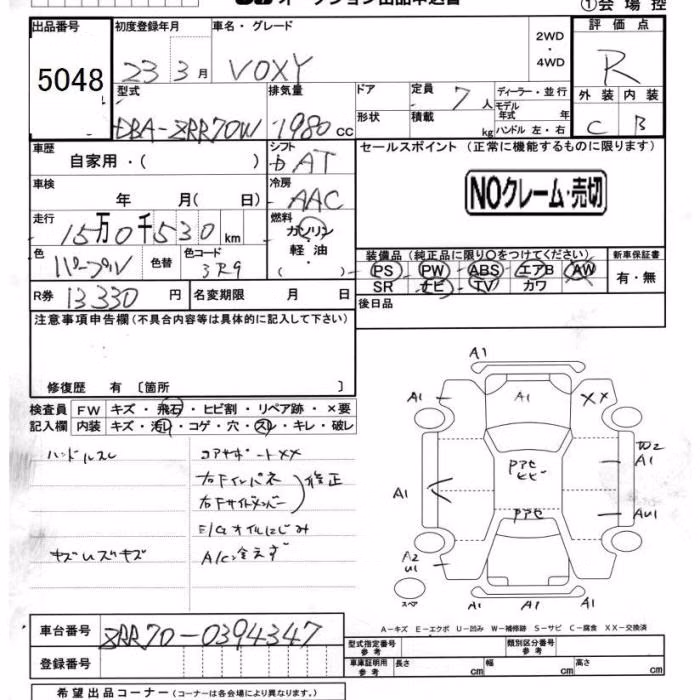 オークション出品申込書
①会場控
出品番号
初度登録年月
車名・グレード
2WD
・
4WD
評価点
5048
23年3月
VOXY
R
型式
排気量
ドア
定員
7人
ディーラー・並行
モデル
年式 年
外装
内装
DBA-ZRR70W
1980cc
形状
積載
kg
ハンドル 左・右
C
B
車歴
自家用・( )
シフト
AT
セールスポイント (正常に機能するものに限ります)
車検
年 月( 日)
冷房
AAC
NOクレーム・売切
走行
15万0千530km
燃料
ガソリン
軽油
( )
色
パープル
色替
色コード
3R9
装備品(純正品に限り○をつけてください)
新車保証書
PS
PW
ABS
エアB
AW
有・無
SR
ナビ
TV
カワ
R券
13330円
名変期限 月 日
後日品
注意事項申告欄(不具合内容等は具体的に記入して下さい)
修復歴 有 〔箇所 〕
検査員
記入欄
FW
キズ・飛石・ヒビ割・リペア跡・×要
内装
キズ・汚れ・コゲ・穴・スレ・キレ・破レ
ハンドルスレ
コアサポートXX
右Fインパネ
右Fサイドメンバー
修正
E/Gオイルにじみ
キズUズキズ
A/C冷えず
A1
A1
A1
XX
A1
A1
AU1
A2
U1
A1
スペア
A-キズ E-エクボ U-凹み W-補修跡 S-サビ C-腐食 XX-交換済
車台番号
ZRR70-0394347
型式指定番号
参考
類別区分番号
参考
登録番号
車庫証明用
参考
長さ
cm
幅
cm
高さ
cm
希望出品コーナー(コーナーは各会場により異なります。)